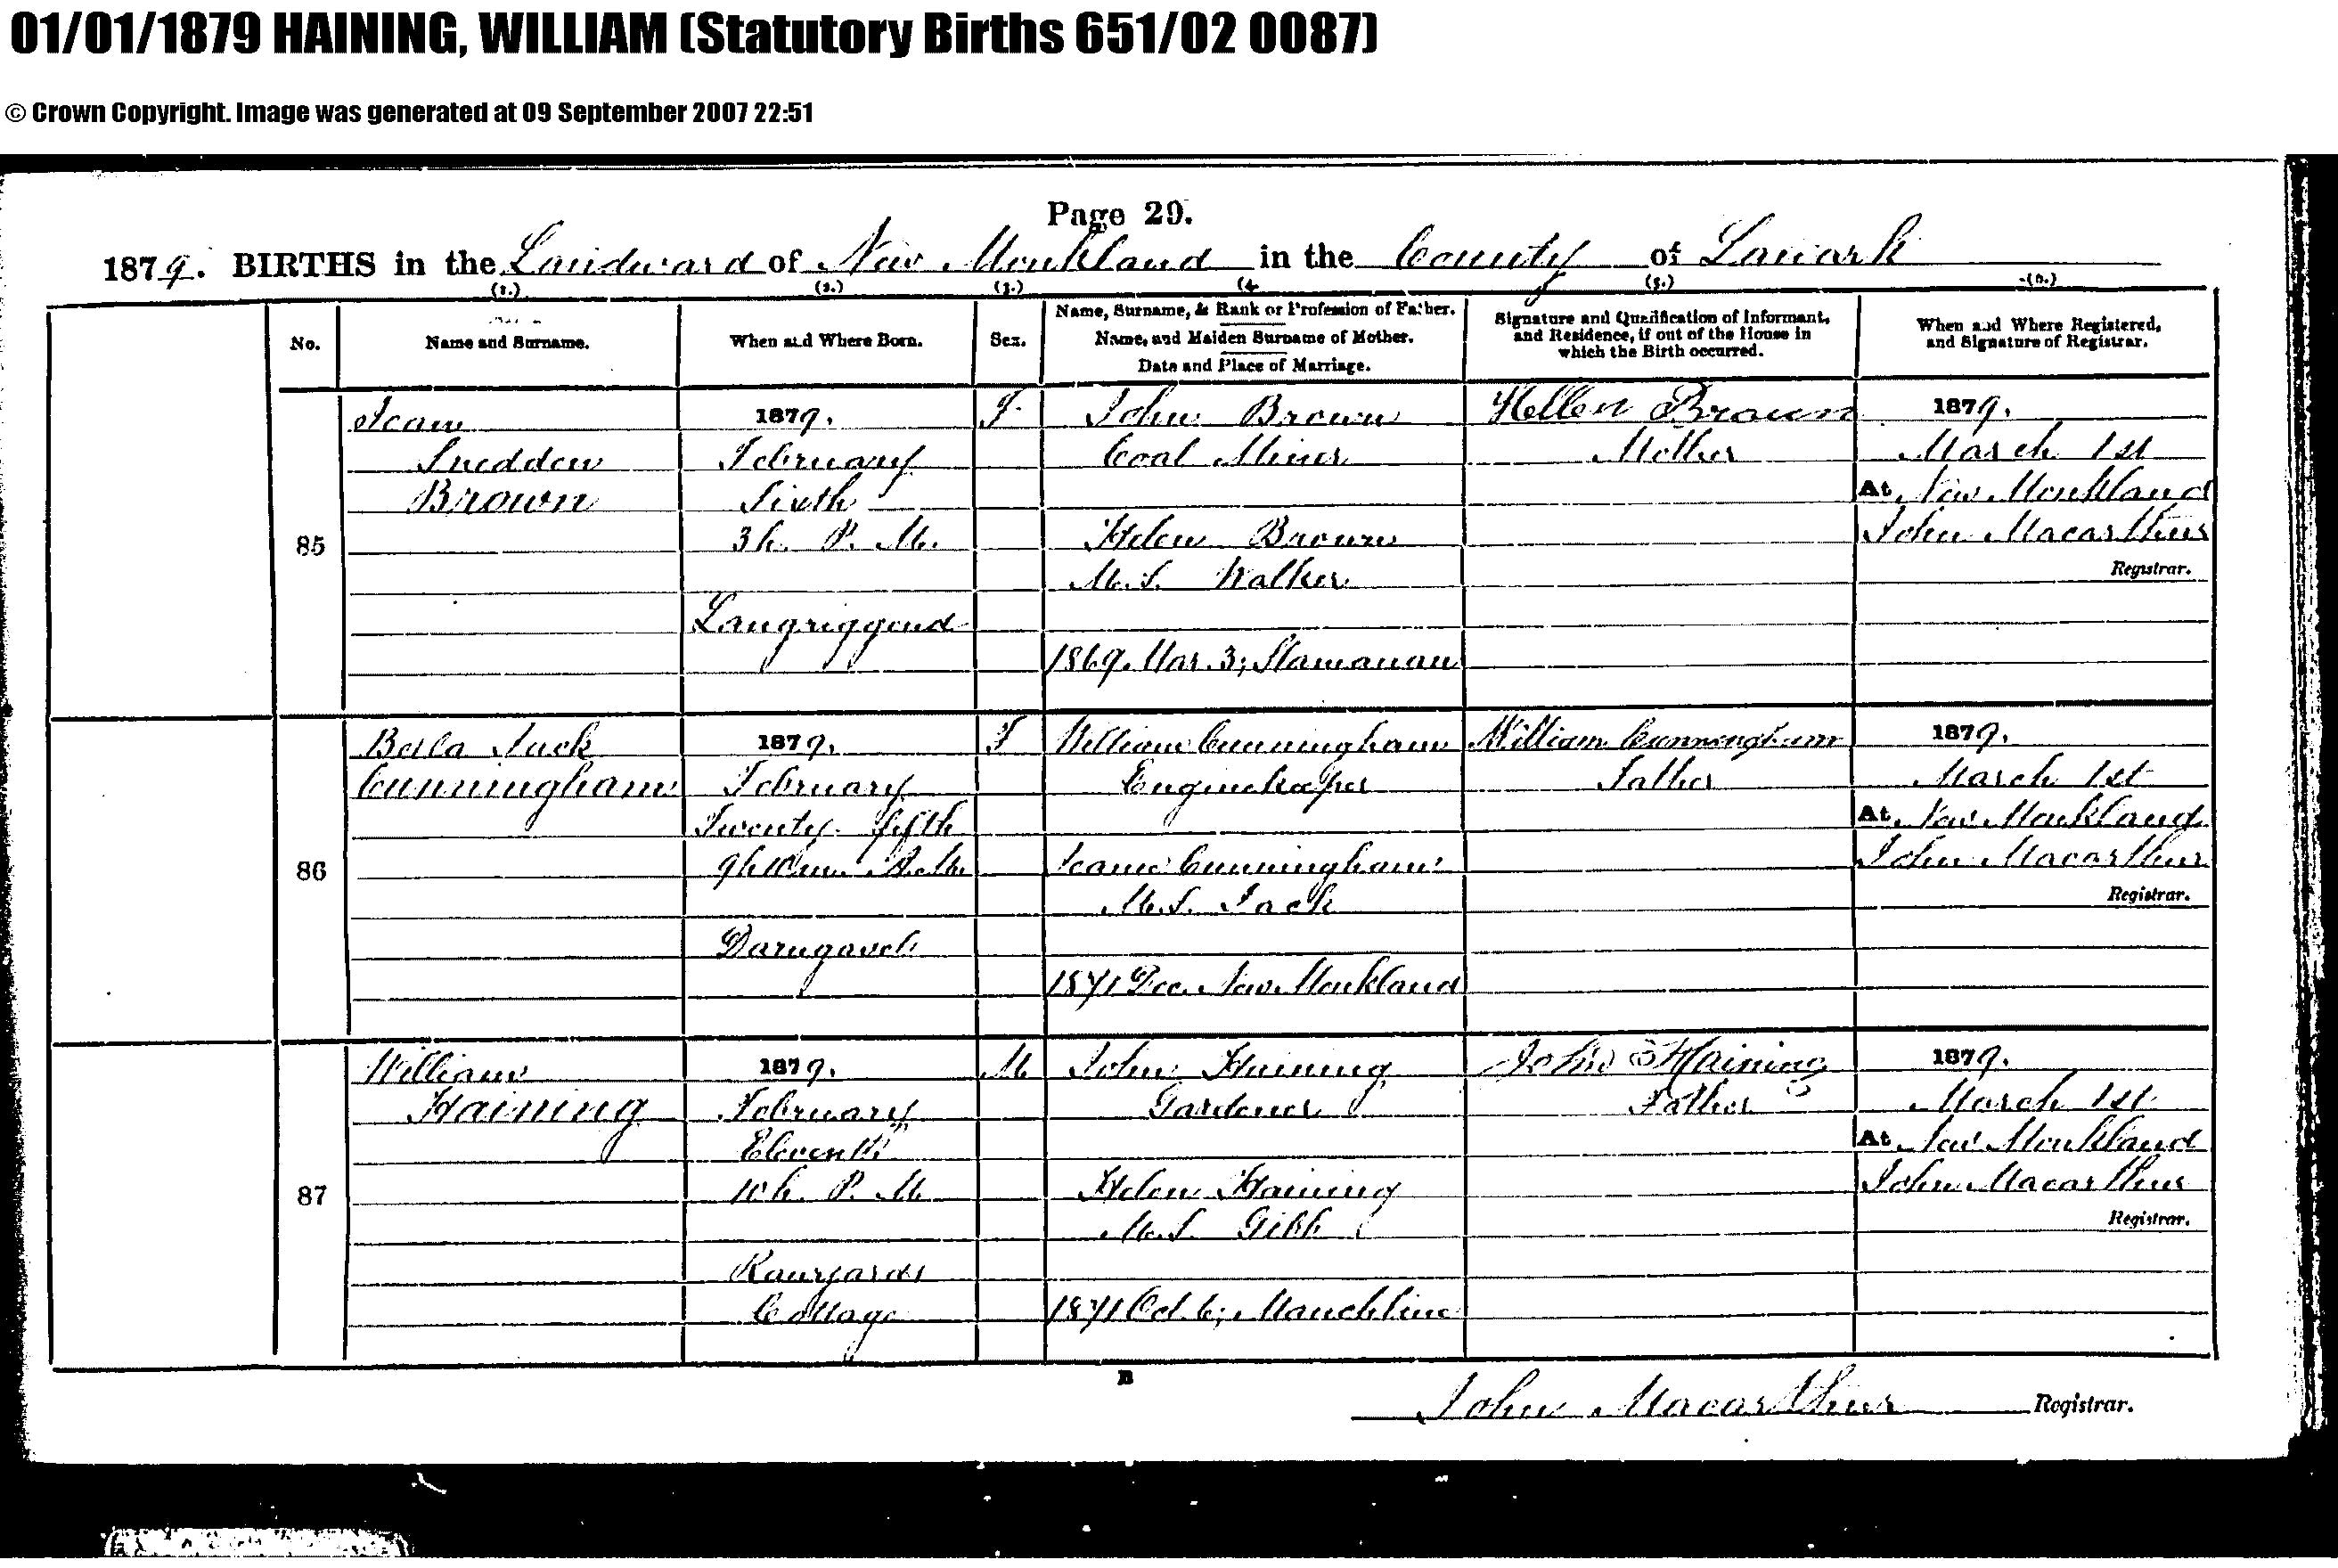 01/01/1879 HAINING, WILLIAM (Statutory Births 651/02 0087)
© Crown Copyright. Image was generated at 09 September 2007 22:51
Page 29.
1879. BIRTHS in the Landward of New Monkland in the County of Lanark
(1.) (2.) (3.) (4. (5.) (6.)
No.
Name and Surname.
When and Where Born.
Sex.
Name, Surname, & Rank or Profession of Father.
Name, and Maiden Surname of Mother.
Date and Place of Marriage.
Signature and Qualification of Informant,
and Residence, if out of the House in
which the Birth occurred.
When and Where Registered,
and Signature of Registrar.
85
Jean
Sneddon
Brown
1879.
February
Sixth
3h. P. M.
Langriggend
F
John Brown
Coal Miner
Helen Brown
M.S. Walker
1869. Mar. 3; Slamanan
Hellen Brown
Mother
1879.
March 1st
At New Monkland
John Macarthur
Registrar.
86
Bella Jack
Cunningham
1879.
February
Twenty fifth
9h 10m. A.M.
Darngavel
F
William Cunningham
Enginekeeper
Jeanie Cunningham
M.S. Jack
1871 Dec. New Monkland
William Cunningham
Father
1879.
March 1st
At New Monkland
John Macarthur
Registrar.
87
William
Haining
1879.
February
Eleventh
10h. P. M.
Rawyards
Cottage
M
John Haining
Gardener
Helen Haining
M.S. Gibb
1871 Oct. 6; Mauchline
John Haining
Father
1879.
March 1st
At New Monkland
John Macarthur
Registrar.
B
John Macarthur Registrar.